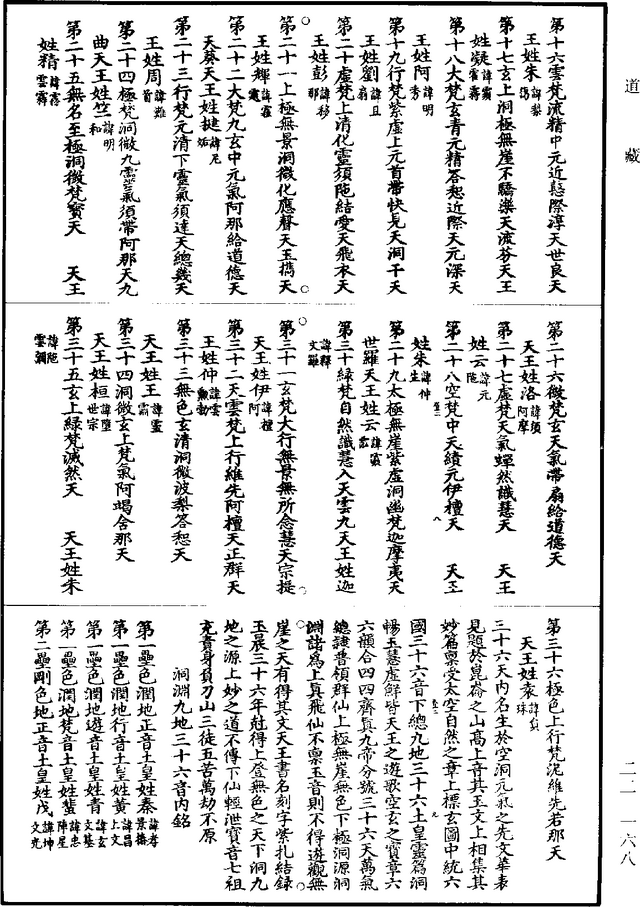 道藏
第十六雲梵流精中元近愆際淳天世良天
王姓朱諱黎
第十七玄上洞極無崖不驕樂天流芬天王
姓凝諱霜
第十八大梵玄青元精答恕近際天元深天
王姓阿諱明秀
第十九行梵紫虛上元首帶快見天洞干天
王姓劉諱且扇
第二十虛梵上清化靈須陁結愛天飛衣天
王姓彭諱移那
第二十一上極無景洞微化應聲天玉㒞天
王姓輝
第二十二大梵九玄中元氣阿那給道德天
天葵天王姓揵諱尼妬
第二十三行梵元清下靈氣須達天總幾天
王姓周諱難首
第二十四極梵洞微九靈氣須帶阿那天九
曲天王姓竺諱明和
第二十五無名至極洞微梵寶天 天王
姓精諱霧雲霧
第二十六微梵玄天氣帶扇給道德天
天王姓洛諱須阿摩
第二十七虛梵天氣蟬然識慧天 天王
姓云諱元陁
第二十八空梵中天績元伊檀天 天王
姓朱諱仲
第二十九太極無崖紫虛洞幽梵迦摩夷天
世羅天王姓云諱霐
第三十綠梵自然識慧入天雲九天王姓迦
諱釋文羅
第三十一玄梵大行無景無所念慧天宗提
天王姓伊諱檀阿
第三十二天雲梵上行維先阿檀天正群天
王姓仲諱雲勳勃
第三十三無色玄清洞微波梨答惒天
天王姓王諱靈霸
第三十四洞微玄上梵氣阿竭舍那天
天王姓桓諱墮世宗
第三十五玄上綠梵滅然天 天王姓朱
諱陁雲鋼
第三十六極色上行梵泥維先若那天
天王姓袁諱員珠
三十六天內名生於空洞元氣之先文華表
見題於崑崙之山高上音其玉文上相集其
妙篇禀受太空自然之章上標玄圖中統六
國三十六音下總九地三十六土皇靈篇洞
暢玉慧虛鮮皆天王之遊歌空玄之寶章六
六韻合四四齊真九帝分號三十六天萬氣
總隷普領群仙上極無崖無色下極洞源洞
淵諸爲上真飛仙不禀玉音則不得遊觀無
崖之天有得其文天王書名刻字紫札結錄
玉晨三十六年尅得上登無色之天下洞九
地之源上妙之道不傳下仙輕泄寶音七祖
充責身負刀山三徒五苦萬劫不原
洞淵九地三十六音內銘
第一壘色潤地正音土皇姓秦諱孝景椿
第一壘色潤地行音土皇姓黃諱昌上文
第一壘色潤地遊音土皇姓青諱玄文基
第一壘色潤地梵音土皇姓蜚諱忠陣星
第二壘剛色地正音土皇姓戊諱坤文光
二二—一六八